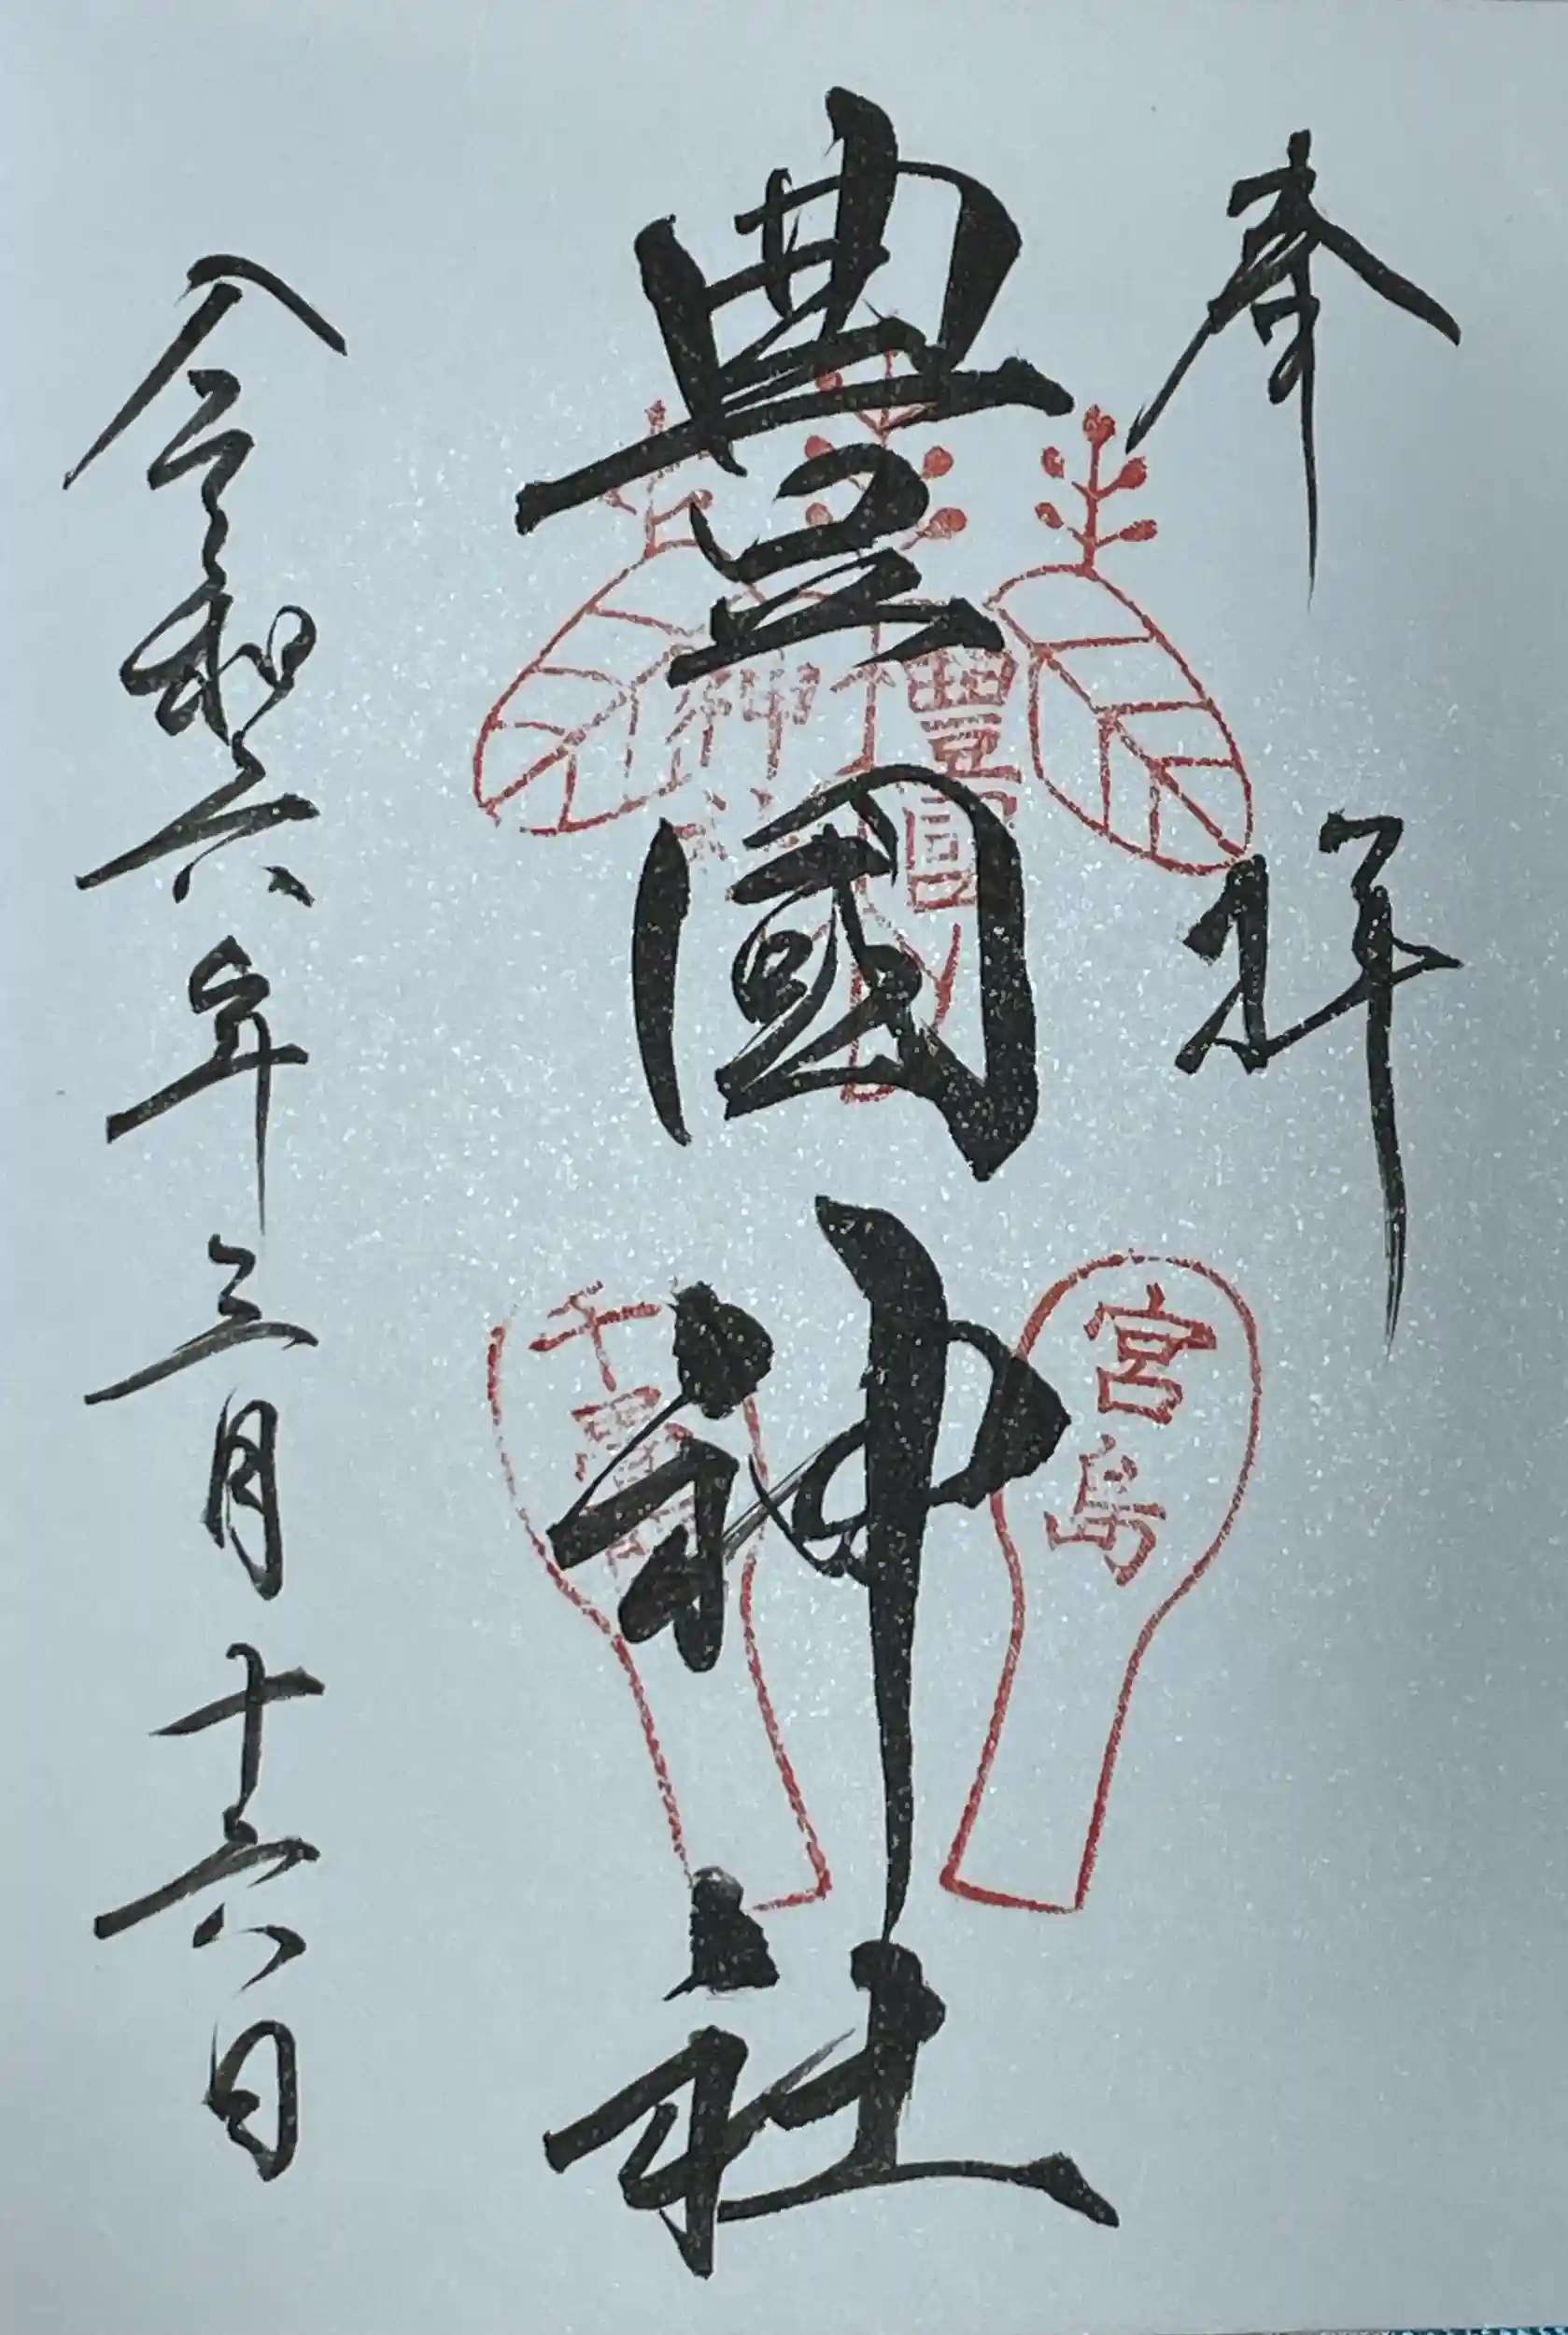 奉拝
豊國神社
豐國
神社
宮島
千畳閣
令和六年三月十六日